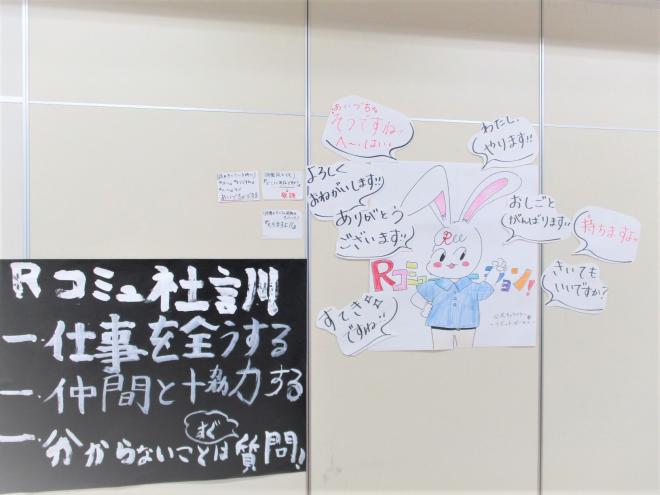 あいづちは
そうですねッ
へ〜、はい！
わたし、
やります!!
よろしく
おねがいします!!
ありがとう
ございます!!
おしごと
がんばります!!
持ちますよッ
きいても
いいですか?
すてき
ですね!!
Rコミュ
ション!
敬語
Rコミュ社訓
一.仕事を全うする
一.仲間と協力する
一.分からないことはすぐ質問!